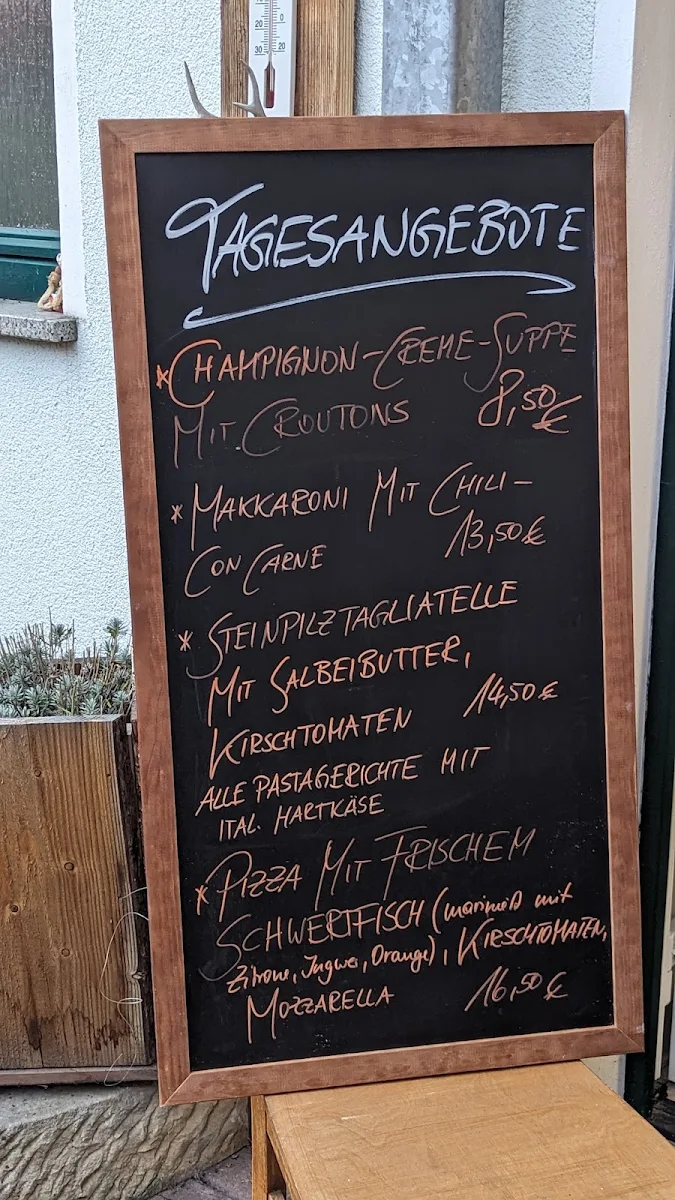 20 0
30 20
TAGESANGEBOTE
*CHAMPIGNON-CREME-SUPPE
MIT CROUTONS 8,50€
*MAKKARONI MIT CHILI-
CON CARNE 13,50€
*STEINPILZTAGLIATELLE
MIT SALBEIBUTTER,
KIRSCHTOMATEN 14,50€
ALLE PASTAGERICHTE MIT
ITAL. HARTKÄSE
*PIZZA MIT FRISCHEM
SCHWERTFISCH (mariniert mit
Zitrone, Ingwer, Orange), KIRSCHTOMATEN,
MOZZARELLA 16,50€